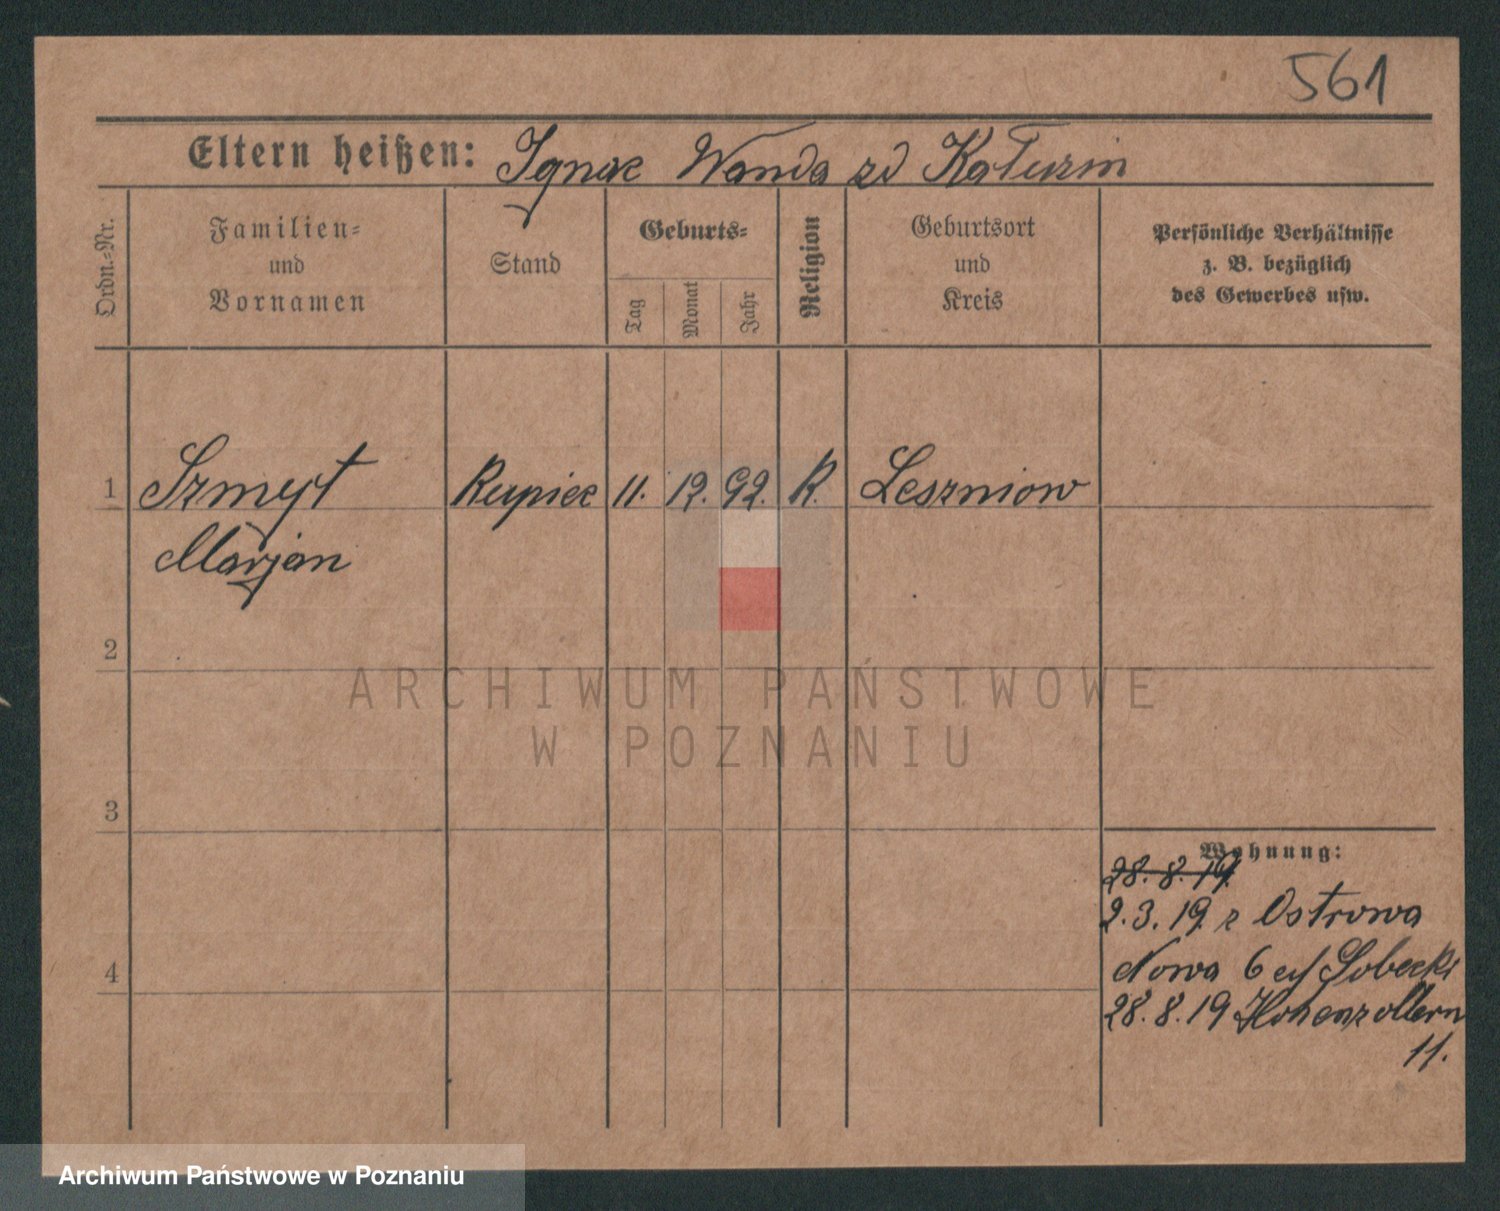 561
Eltern heißen: Ignac Wanda zd Kałuzin
Ordn.-Nr.
Familien-
und
Vornamen
Stand
Geburts-
Tag
Monat
Jahr
Religion
Geburtsort
und
Kreis
Persönliche Verhältnisse
z. B. bezüglich
des Gewerbes usw.
1 Szmyt Kupiec 11. 12. 92. K. Leszniow
Marjan
2
ARCHIWUM PAŃSTWOWE
W POZNANIU
3
Wohnung:
28. 8. 19.
2. 3. 19. z Ostrowa
4
Nowa 6 Sobecki
28. 8. 19 Hohenzollern
11.
Archiwum Państwowe w Poznaniu